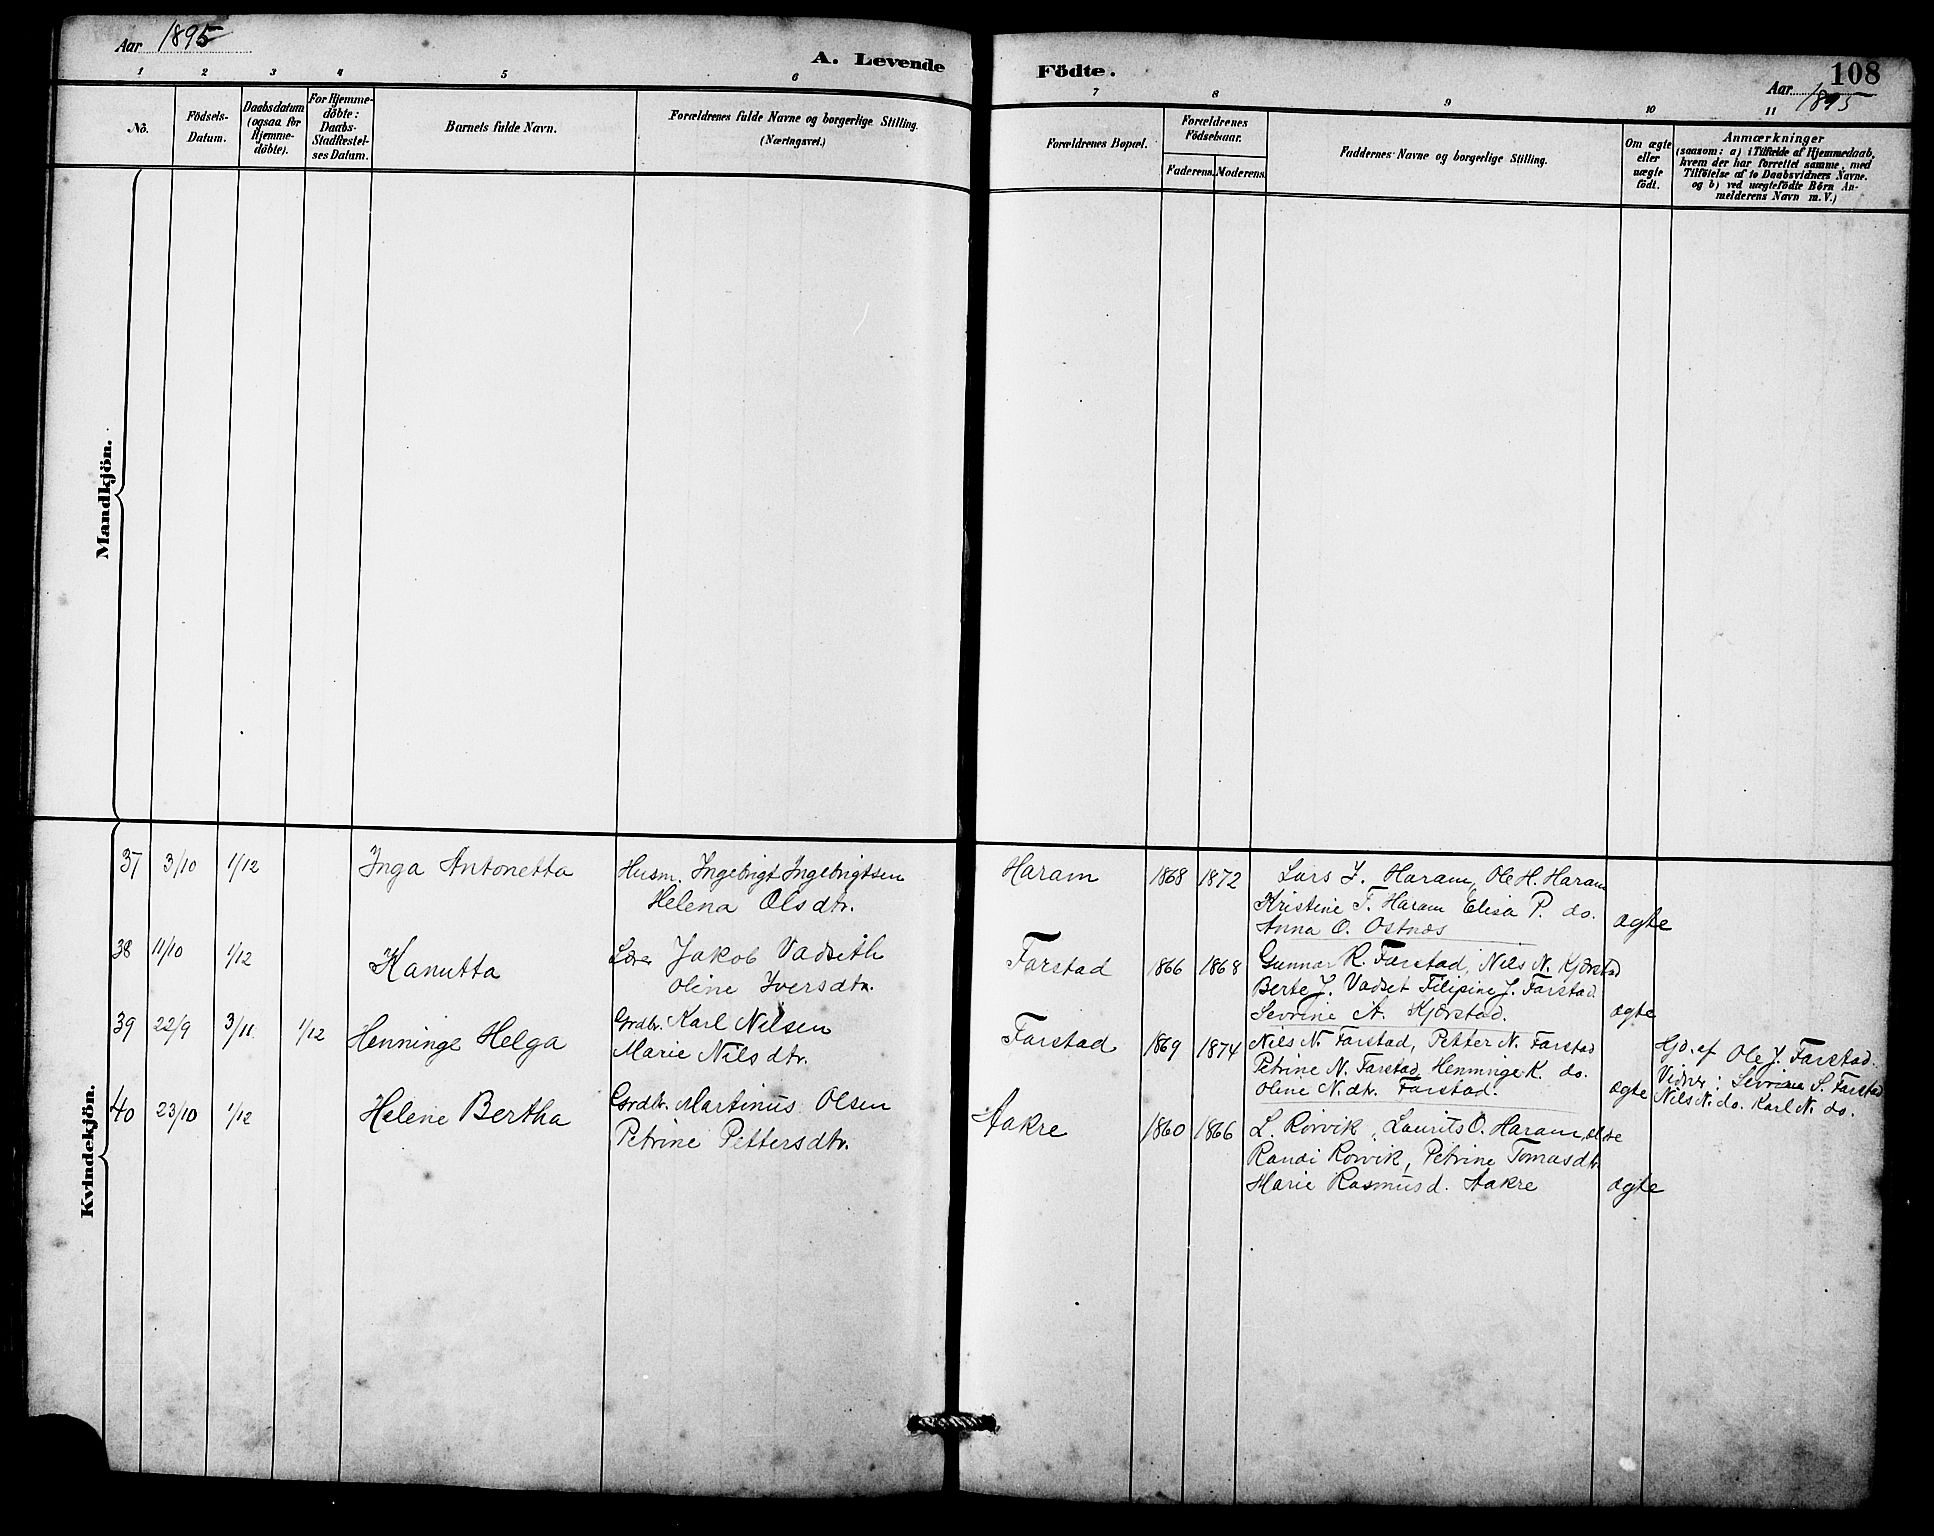 Aar 1895
A. Levende Födte.
108
Aar 1895
1 2 3 4 5 6 7 8 9 10 11
No.
Födsels-
Datum.
Daabsdatum
(ogsaa for
Hjemme-
döbte).
For Hjemme-
döbte:
Daabs-
Stadfæstel-
ses Datum.
Barnets fulde Navn.
Forældrenes fulde Navne og borgerlige Stilling.
(Næringsvei.)
Forældrenes Bopæl.
Forældrenes
Födselsaar.
Faderens. Moderens.
Faddernes Navne og borgerlige Stilling.
Om ægte
eller
uægte
födt.
Anmærkninger
(saasom: a) i Tilfælde af Hjemmedaab,
hvem der har forrettet samme, med
Tilföielse af to Daabsvidners Navne.
og b) ved uægtefödte Börn An-
melderens Navn m. V.)
Mandkjön.
Kvindekjön.
37 3/10 1/12 Inga Antonetta Husm. Ingebrigt Ingebrigtsen Haram 1868 1872 Lars I. Haram, Ole H. Haram
Helena Olsdtr. Kristine T. Haram Elisa P. do.
Anna O. Ostnæs ægte
38 11/10 1/12 Hanutta Lærer Jakob Vadseth Farstad 1866 1868 Gunnar R. Farstad, Nils N. Kjørstad
Oline Iversdtr. Berte J. Vadset Filipine J. Farstad
Sevrine A. Kjørstad. ægte
39 22/9 3/11 1/12 Henninge Helga Grdbr. Karl Nilsen Farstad 1869 1874 Nils N. Farstad, Petter N. Farstad Hjd. af Ole J. Farstad.
Marie Nilsdtr. Petrine N. Farstad, Henninge K. do. Vidner: Sevrine S. Farstad
Oline N.dtr. Farstad. ægte Nils N. do. Karl N. do.
40 23/10 1/12 Helene Bertha Grdbr. Martinus Olsen Aakre 1860 1866 L. Rørvik, Laurits O. Haram
Petrine Pettersdtr. Randi Rørvik, Petrine Tomasdtr.
Marie Rasmusd. Aakre ægte